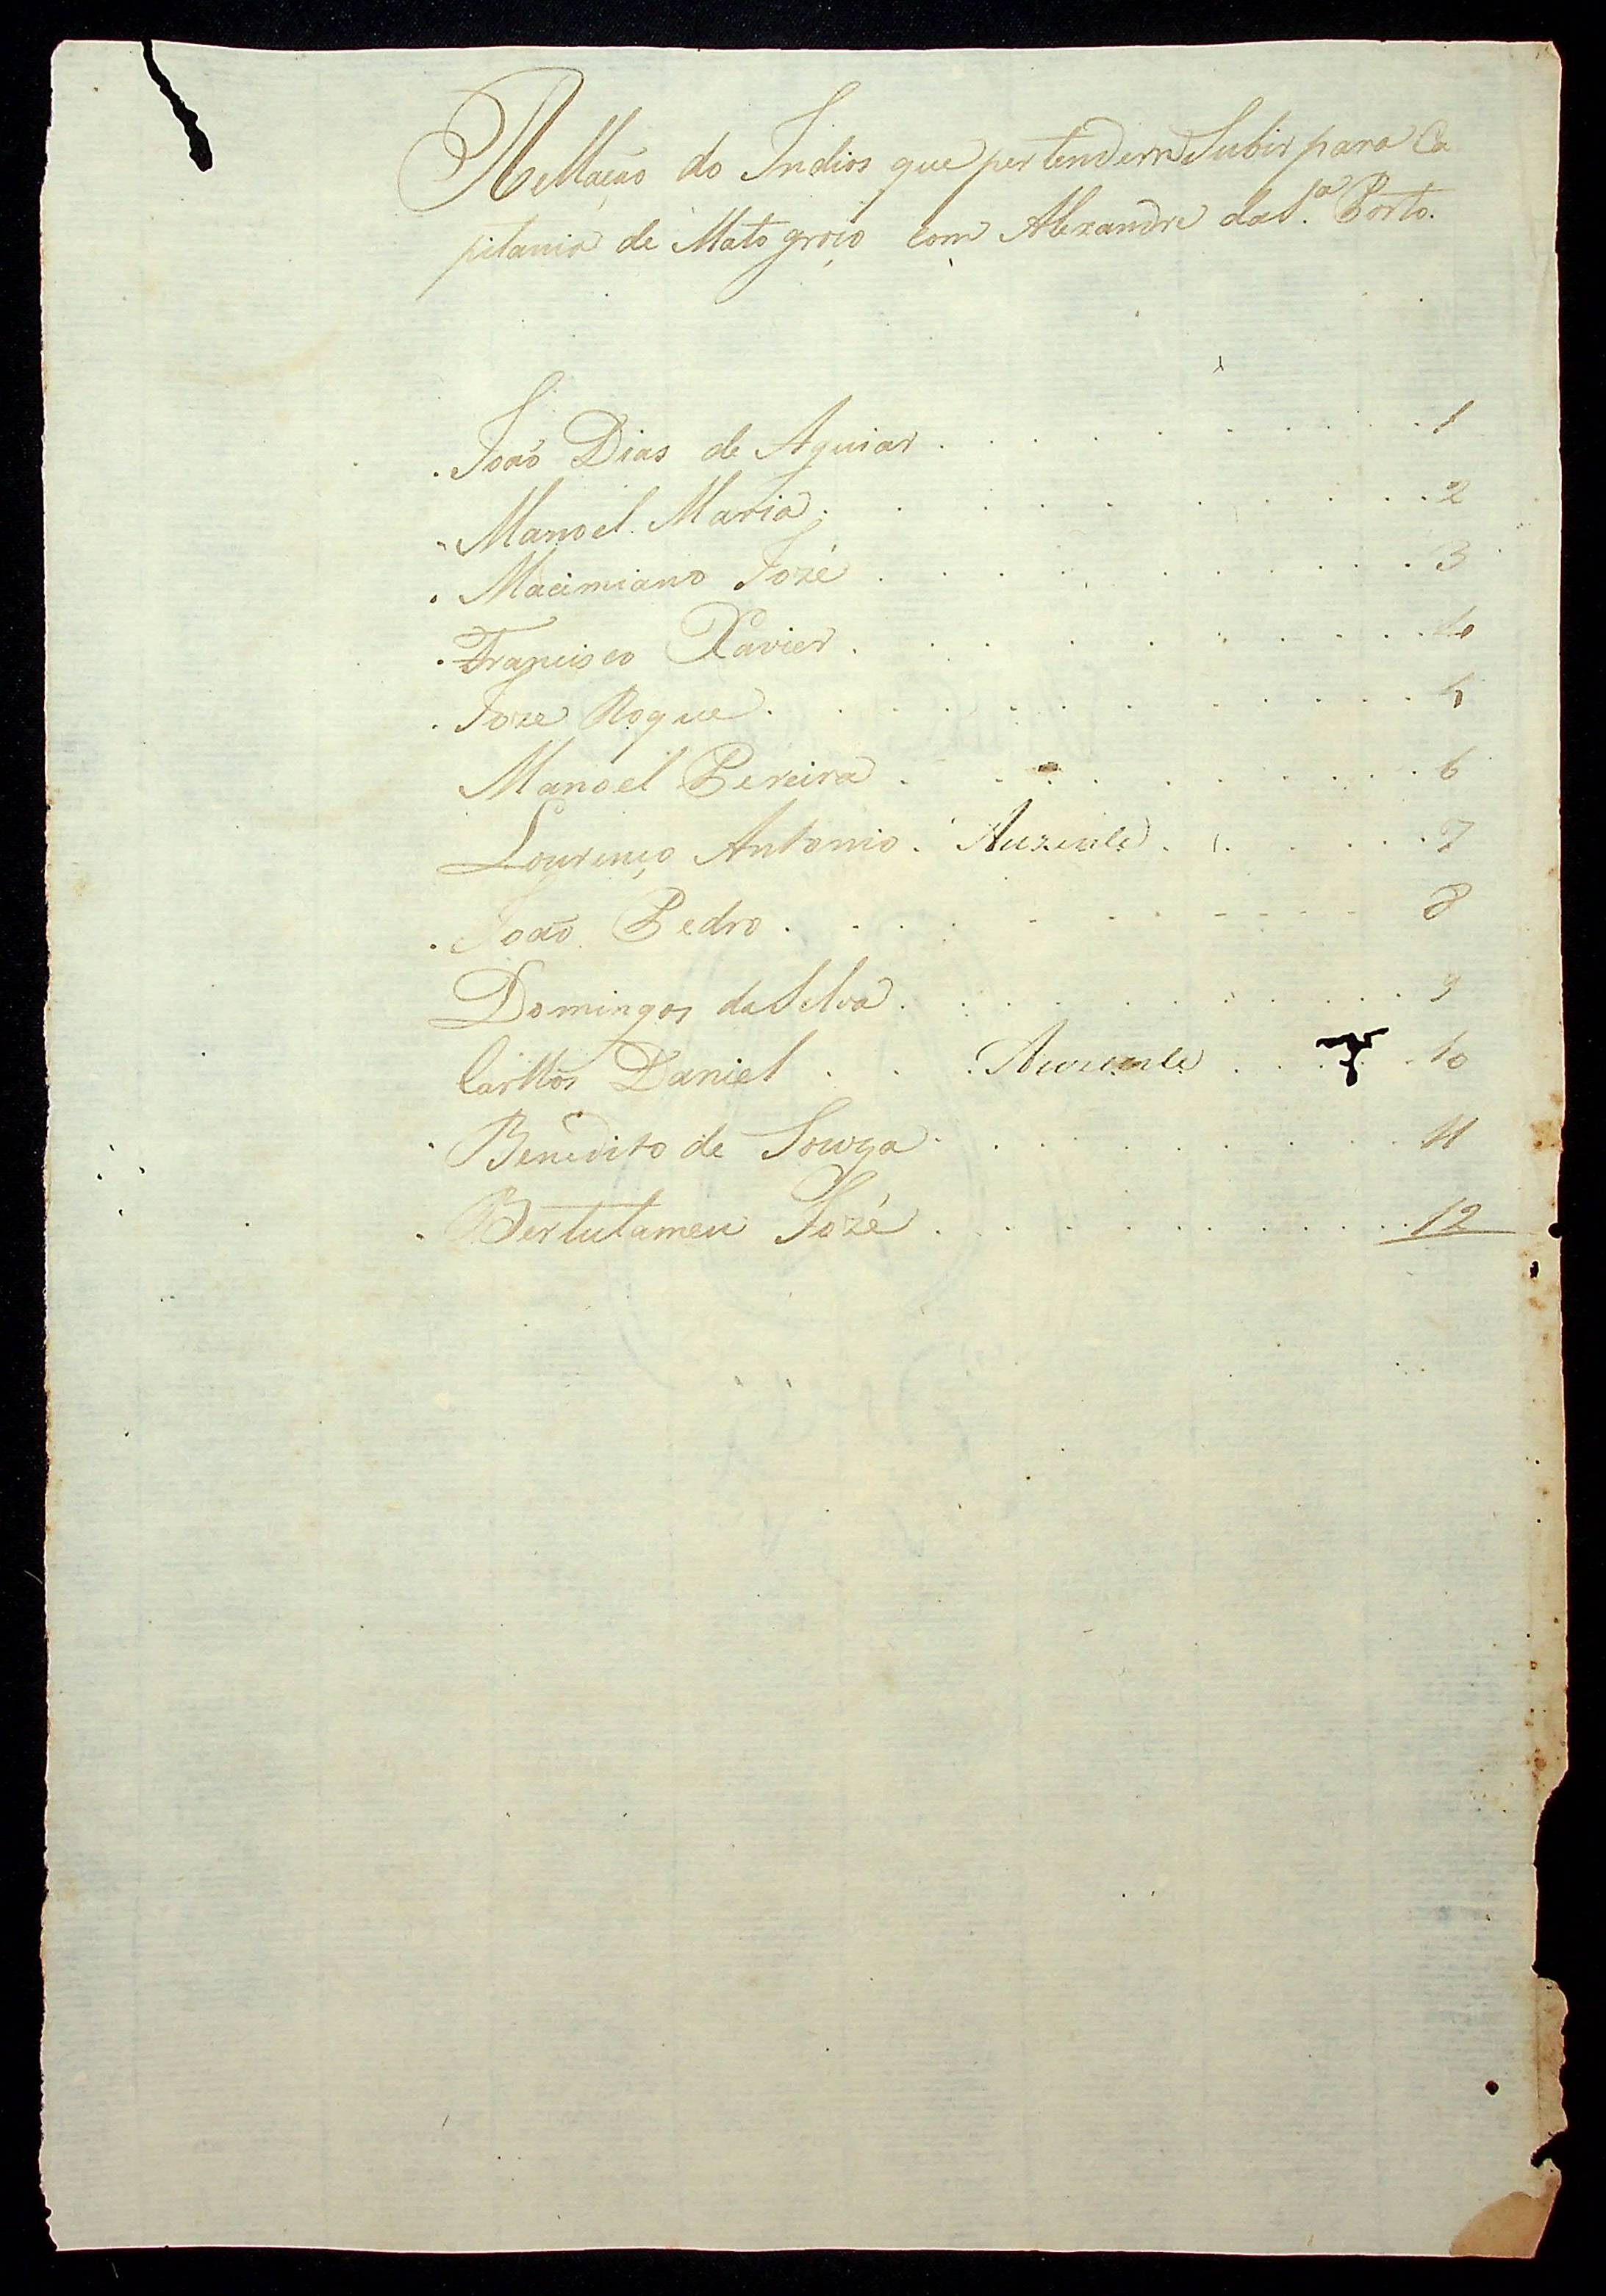 Rellação do Indios que pertendem Subir para Ca
pitania de Mato groço com Alexandre da S.ª Porto.
João Dias de Aguiar . . . . . . . . . . 1
Manoel Maria . . . . . . . . . . 2
Macimiano Jozé . . . . . . . . . . 3
Francisco Xavier . . . . . . . . . . 4
Joze Roque . . . . . . . . . . 5
Manoel Pereira . . . . . . . . . . 6
Lourenço Antonio . Auzente . . . . . . 7
João Pedro . . . . . . . . . . 8
Domingos da Silva . . . . . . . . . . 9
Carllos Daniel . . . Auzente . . . . 10
Benedito de Souza . . . . . . . . . . 11
Bertulameu Jozé . . . . . . . . . . 12